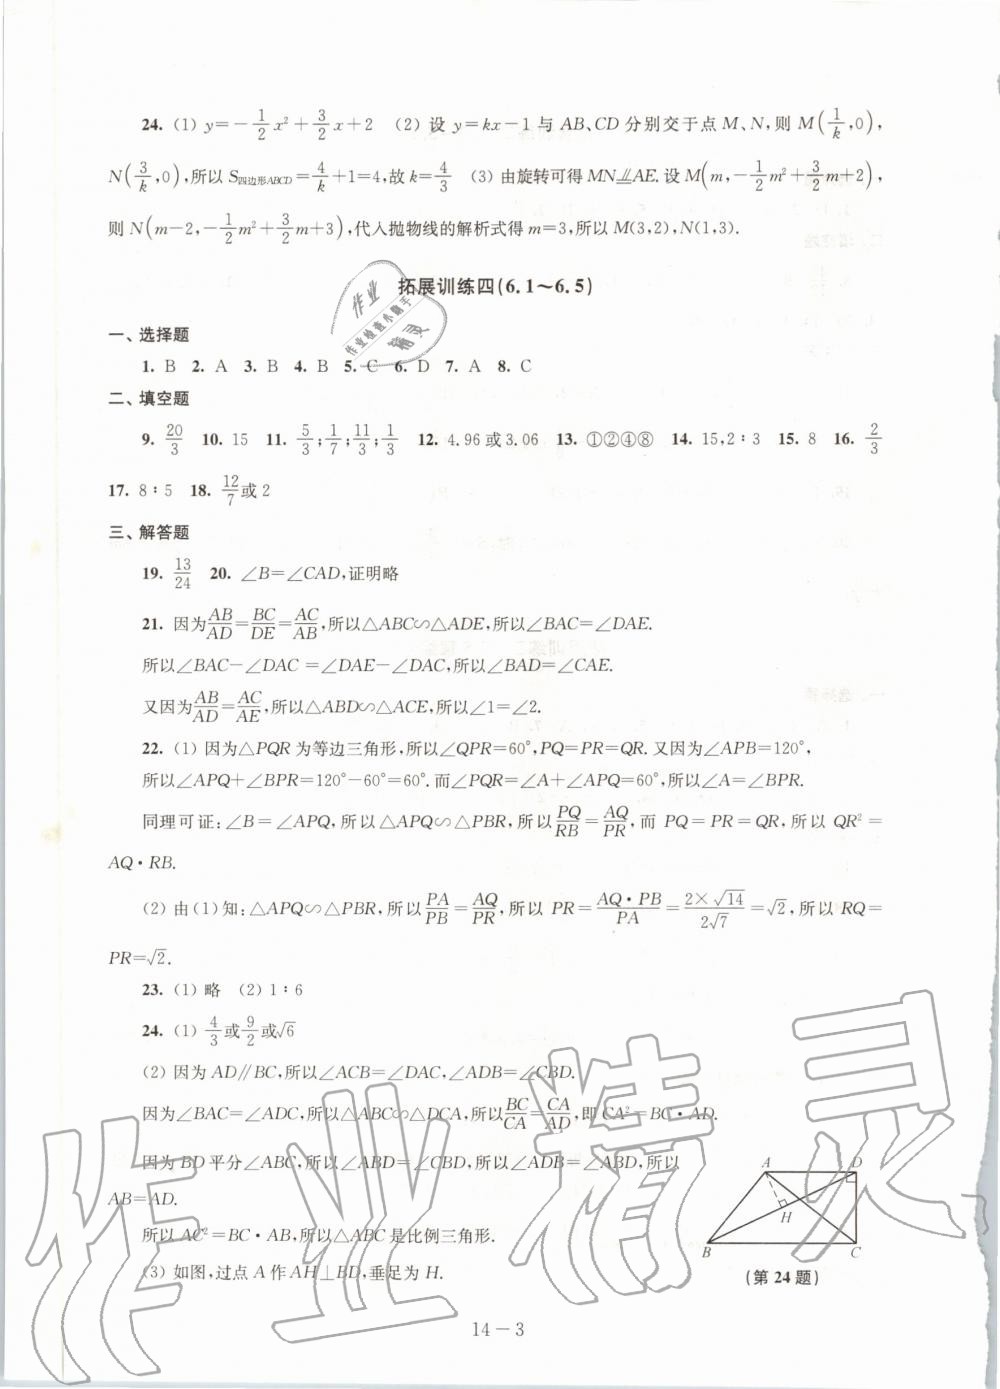 24. (1) y=-1/2x²+3/2x+2 (2) 设 y=kx-1与 AB、CD 分别交于点 M、N,则 M(1/k,0),
N(3/k,0),所以 S四边形ABCD=4/k+1=4,故 k=4/3 (3) 由旋转可得 MN⫽AE. 设 M(m,-1/2m²+3/2m+2),
则 N(m-2,-1/2m²+3/2m+3),代入抛物线的解析式得 m=3,所以 M(3,2),N(1,3).
拓展训练四(6.1～6.5)
一、选择题
1. B 2. A 3. B 4. B 5. C 6. D 7. A 8. C
二、填空题
9. 20/3 10. 15 11. 5/3;1/7;11/3;1/3 12. 4.96或3.06 13. ①②④⑧ 14. 15,2∶3 15. 8 16. 2/3
17. 8∶5 18. 12/7或2
三、解答题
19. 13/24 20. ∠B=∠CAD,证明略
21. 因为AB/AD=BC/DE=AC/AB,所以△ABC∽△ADE,所以∠BAC=∠DAE.
所以∠BAC-∠DAC =∠DAE-∠DAC,所以∠BAD=∠CAE.
又因为AB/AD=AC/AE,所以△ABD∽△ACE,所以∠1=∠2.
22. (1) 因为△PQR 为等边三角形,所以∠QPR=60°,PQ=PR=QR. 又因为∠APB=120°,
所以∠APQ+∠BPR=120°-60°=60°. 而∠PQR=∠A+∠APQ=60°,所以∠A=∠BPR.
同理可证:∠B=∠APQ,所以△APQ∽△PBR,所以PQ/RB=AQ/PR,而 PQ=PR=QR,所以 QR²=
AQ·RB.
(2) 由(1)知:△APQ∽△PBR,所以PA/PB=AQ/PR,所以 PR=AQ·PB/PA=2×√14/2√7=√2,所以 RQ=
PR=√2.
23. (1) 略 (2) 1∶6
24. (1) 4/3或9/2或√6
(2) 因为 AD∥BC,所以∠ACB=∠DAC,∠ADB=∠CBD.
因为∠BAC=∠ADC,所以△ABC∽△DCA,所以BC/CA=CA/AD,即 CA²=BC·AD.
因为 BD 平分∠ABC,所以∠ABD=∠CBD,所以∠ADB=∠ABD,所以
AB=AD.
所以 AC²=BC·AB,所以△ABC 是比例三角形.
(3) 如图,过点 A 作 AH⊥BD,垂足为 H.
A D
H
B C
(第 24 题)
14-3
作业
作业检查小助手
精灵
作业精灵